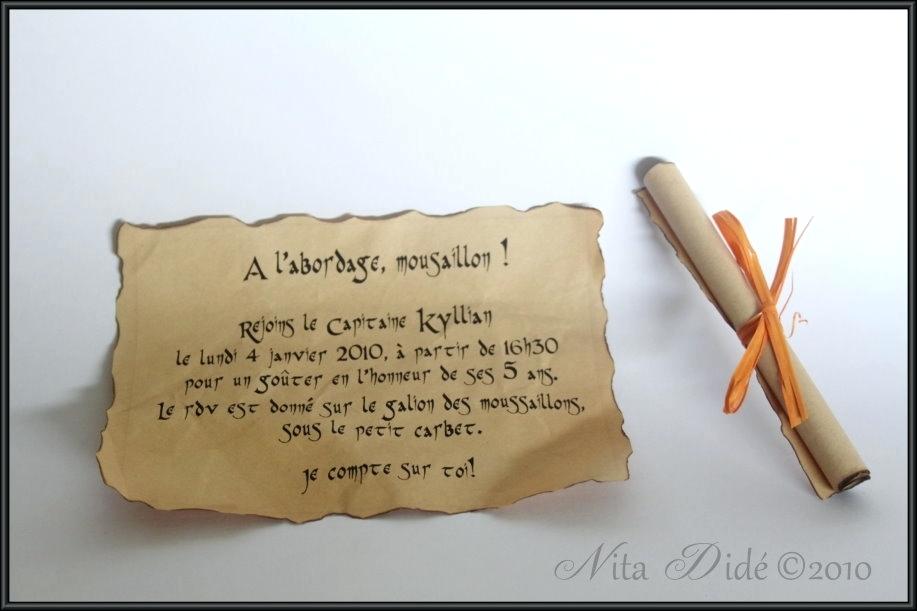 A l'abordage, mousaillon !
Rejoins le Capitaine Kyllian
le lundi 4 janvier 2010, à partir de 16h30
pour un goûter en l'honneur de ses 5 ans.
Le rdv est donné sur le galion des moussaillons,
sous le petit carbet.
Je compte sur toi!
Nita Didé ©2010